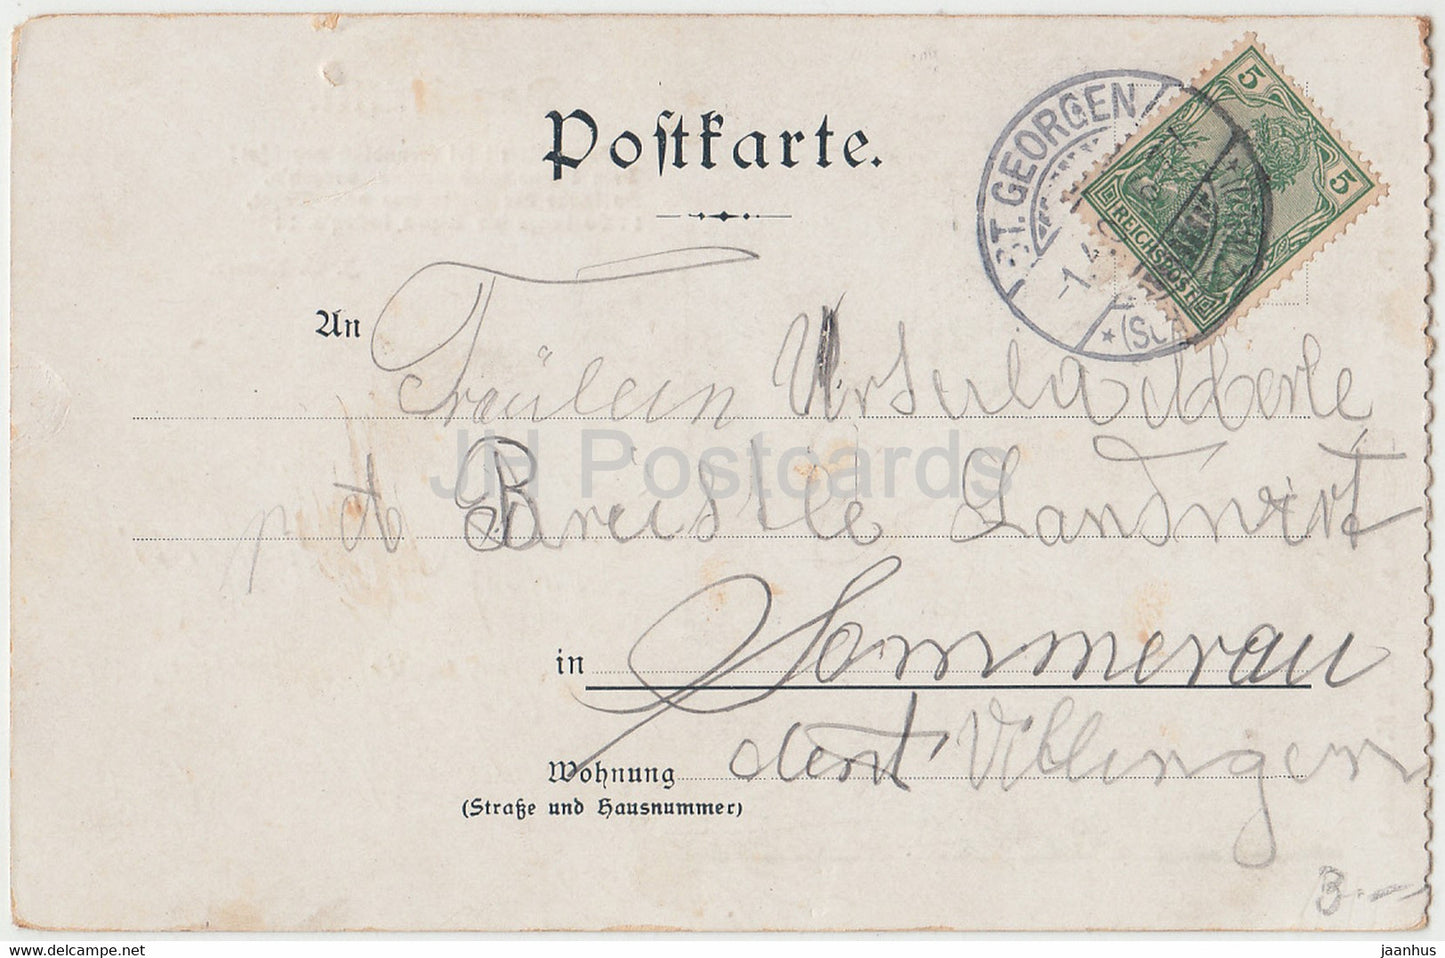 Postkarte.
ST. GEORGEN
5
5
REICHSPOST
An
Fräulein Ursula
Breistle Landwirt
in Sommerau
Wohnung Villingen
(Straße und Hausnummer)
3.-
JH Postcards
delcampe.net
jaanhus